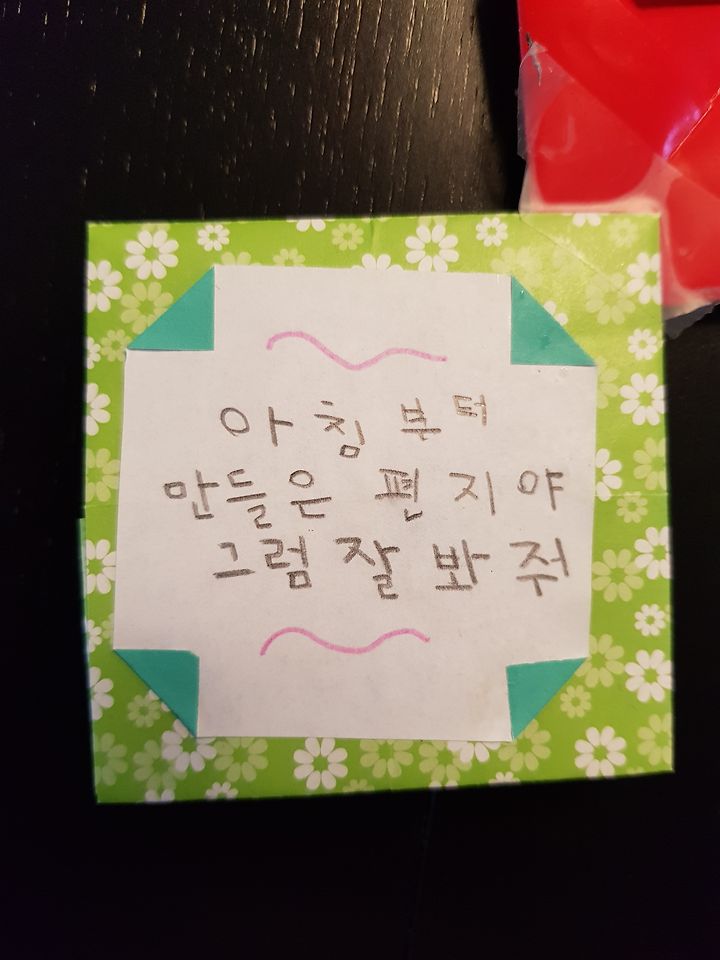 아침부터
만들은 편지야
그럼 잘 봐줘